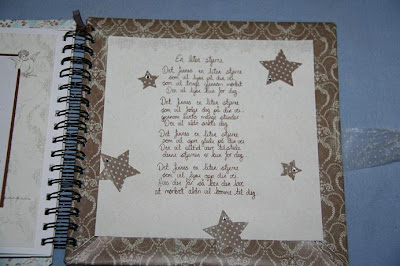 En liten stjerne
Det finnes en liten stjerne
som vil lyse på din vei
som vil trenge gjennom mørket
Den vil lyse kun for deg
Det finnes en liten stjerne
som vil følge deg på din vei
gjennom livets mange
Den vil aldri svikte deg
Det finnes en liten stjerne
som vil gjøre glede på din vei
Den vil alltid være
denne stjernen er kun for deg
Det finnes en liten stjerne
som vil lyse opp din vei
Hvis du får så den
at mørket aldri vil komme til deg